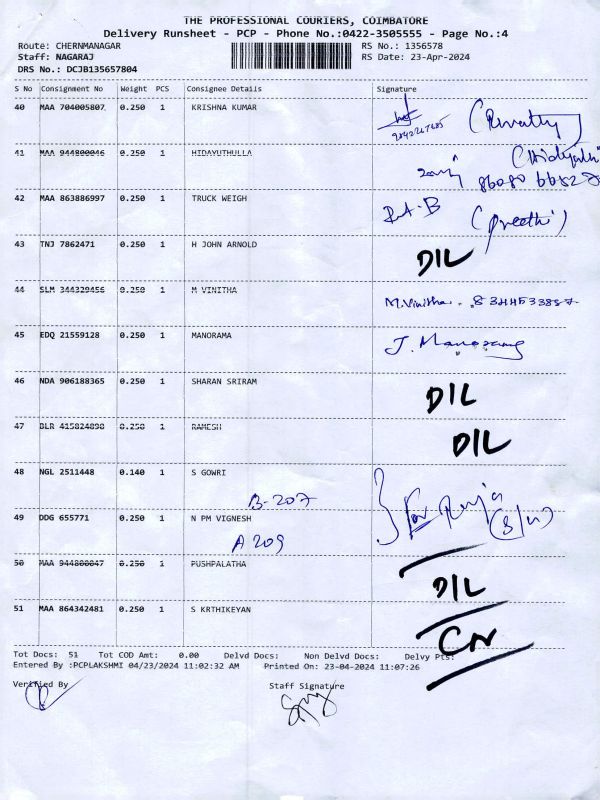 THE PROFESSIONAL COURIERS, COIMBATORE
Delivery Runsheet - PCP - Phone No.:0422-3505555 - Page No.:4
Route: CHERNMANAGAR RS No.: 1356578
Staff: NAGARAJ RS Date: 23-Apr-2024
DRS No.: DCJB135657804
S No Consignment No Weight PCS Consignee Details Signature
40 MAA 704005807 0.250 1 KRISHNA KUMAR
41 MAA 944800046 0.250 1 HIDAYUTHULLA
42 MAA 863886997 0.250 1 TRUCK WEIGH
(preethi)
43 TNJ 7862471 0.250 1 H JOHN ARNOLD DIL
44 SLM 344329456 0.250 1 M VINITHA M.Vinitha.
45 EDQ 21559128 0.250 1 MANORAMA J. Manorama
46 NDA 906188365 0.250 1 SHARAN SRIRAM DIL
47 BLR 415824898 0.250 1 RAMESH DIL
48 NGL 2511448 0.140 1 S GOWRI
B-207
49 DDG 655771 0.250 1 N PM VIGNESH
A 209
50 MAA 944800047 0.250 1 PUSHPALATHA DIL
51 MAA 864342481 0.250 1 S KRTHIKEYAN CN
Tot Docs: 51 Tot COD Amt: 0.00 Delvd Docs: Non Delvd Docs: Delvy Pts:
Entered By :PCPLAKSHMI 04/23/2024 11:02:32 AM Printed On: 23-04-2024 11:07:26
Verified By Staff Signature